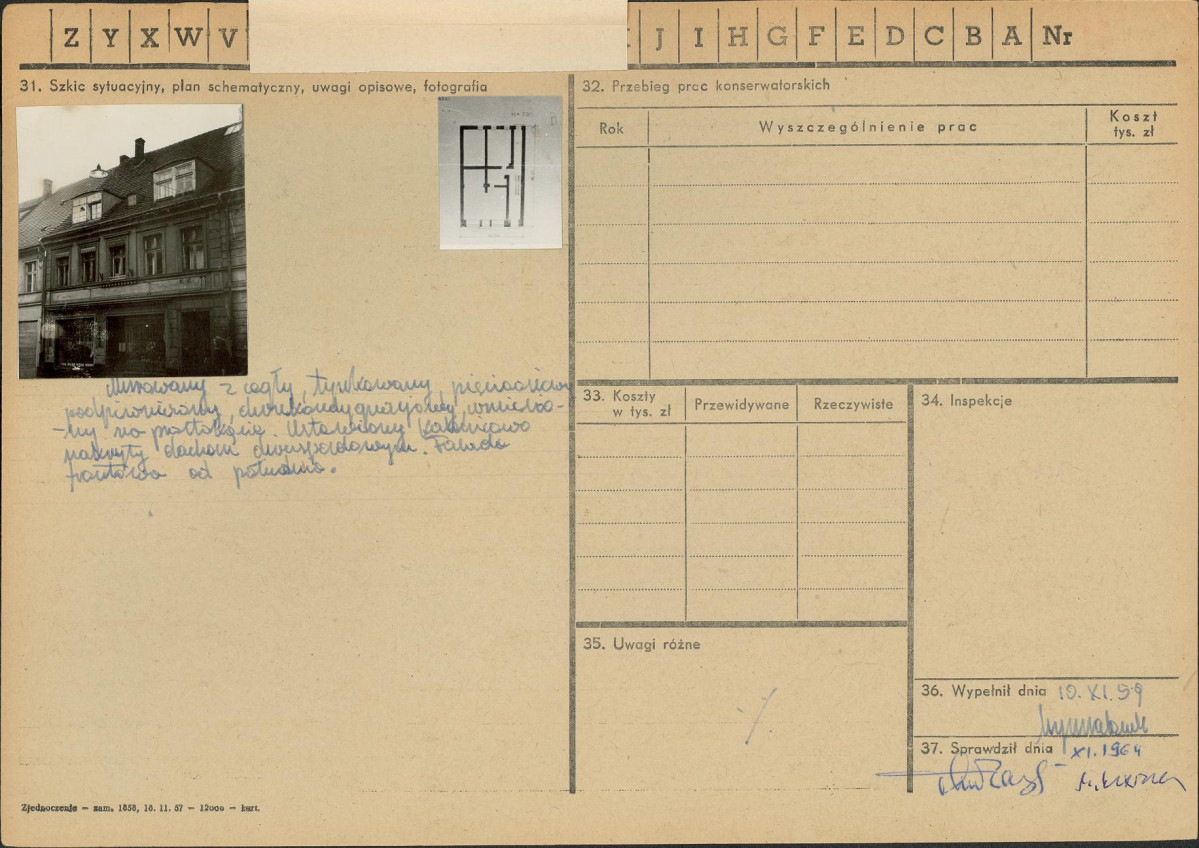 Z Y X W V J I H G F E D C B A Nr
31. Szkic sytuacyjny, plan schematyczny, uwagi opisowe, fotografia
Murowany z cegły, tynkowany, pięcioosiowy
podpiwniczony, dwukondygnacyjny, wznieo-
-ny na prostokącie. Ustawiony kalenicowo
nakryty dachem dwuspadowym. Fasada
frontowa od południa.
Zjednoczenie — zam. 1858, 18. 11. 57 — 12000 — kart.
32. Przebieg prac konserwatorskich
Rok Wyszczególnienie prac Koszt
tys. zł
33. Koszty
w tys. zł Przewidywane Rzeczywiste
34. Inspekcje
35. Uwagi różne
36. Wypełnił dnia 10. XI. 59
37. Sprawdził dnia XI. 1964